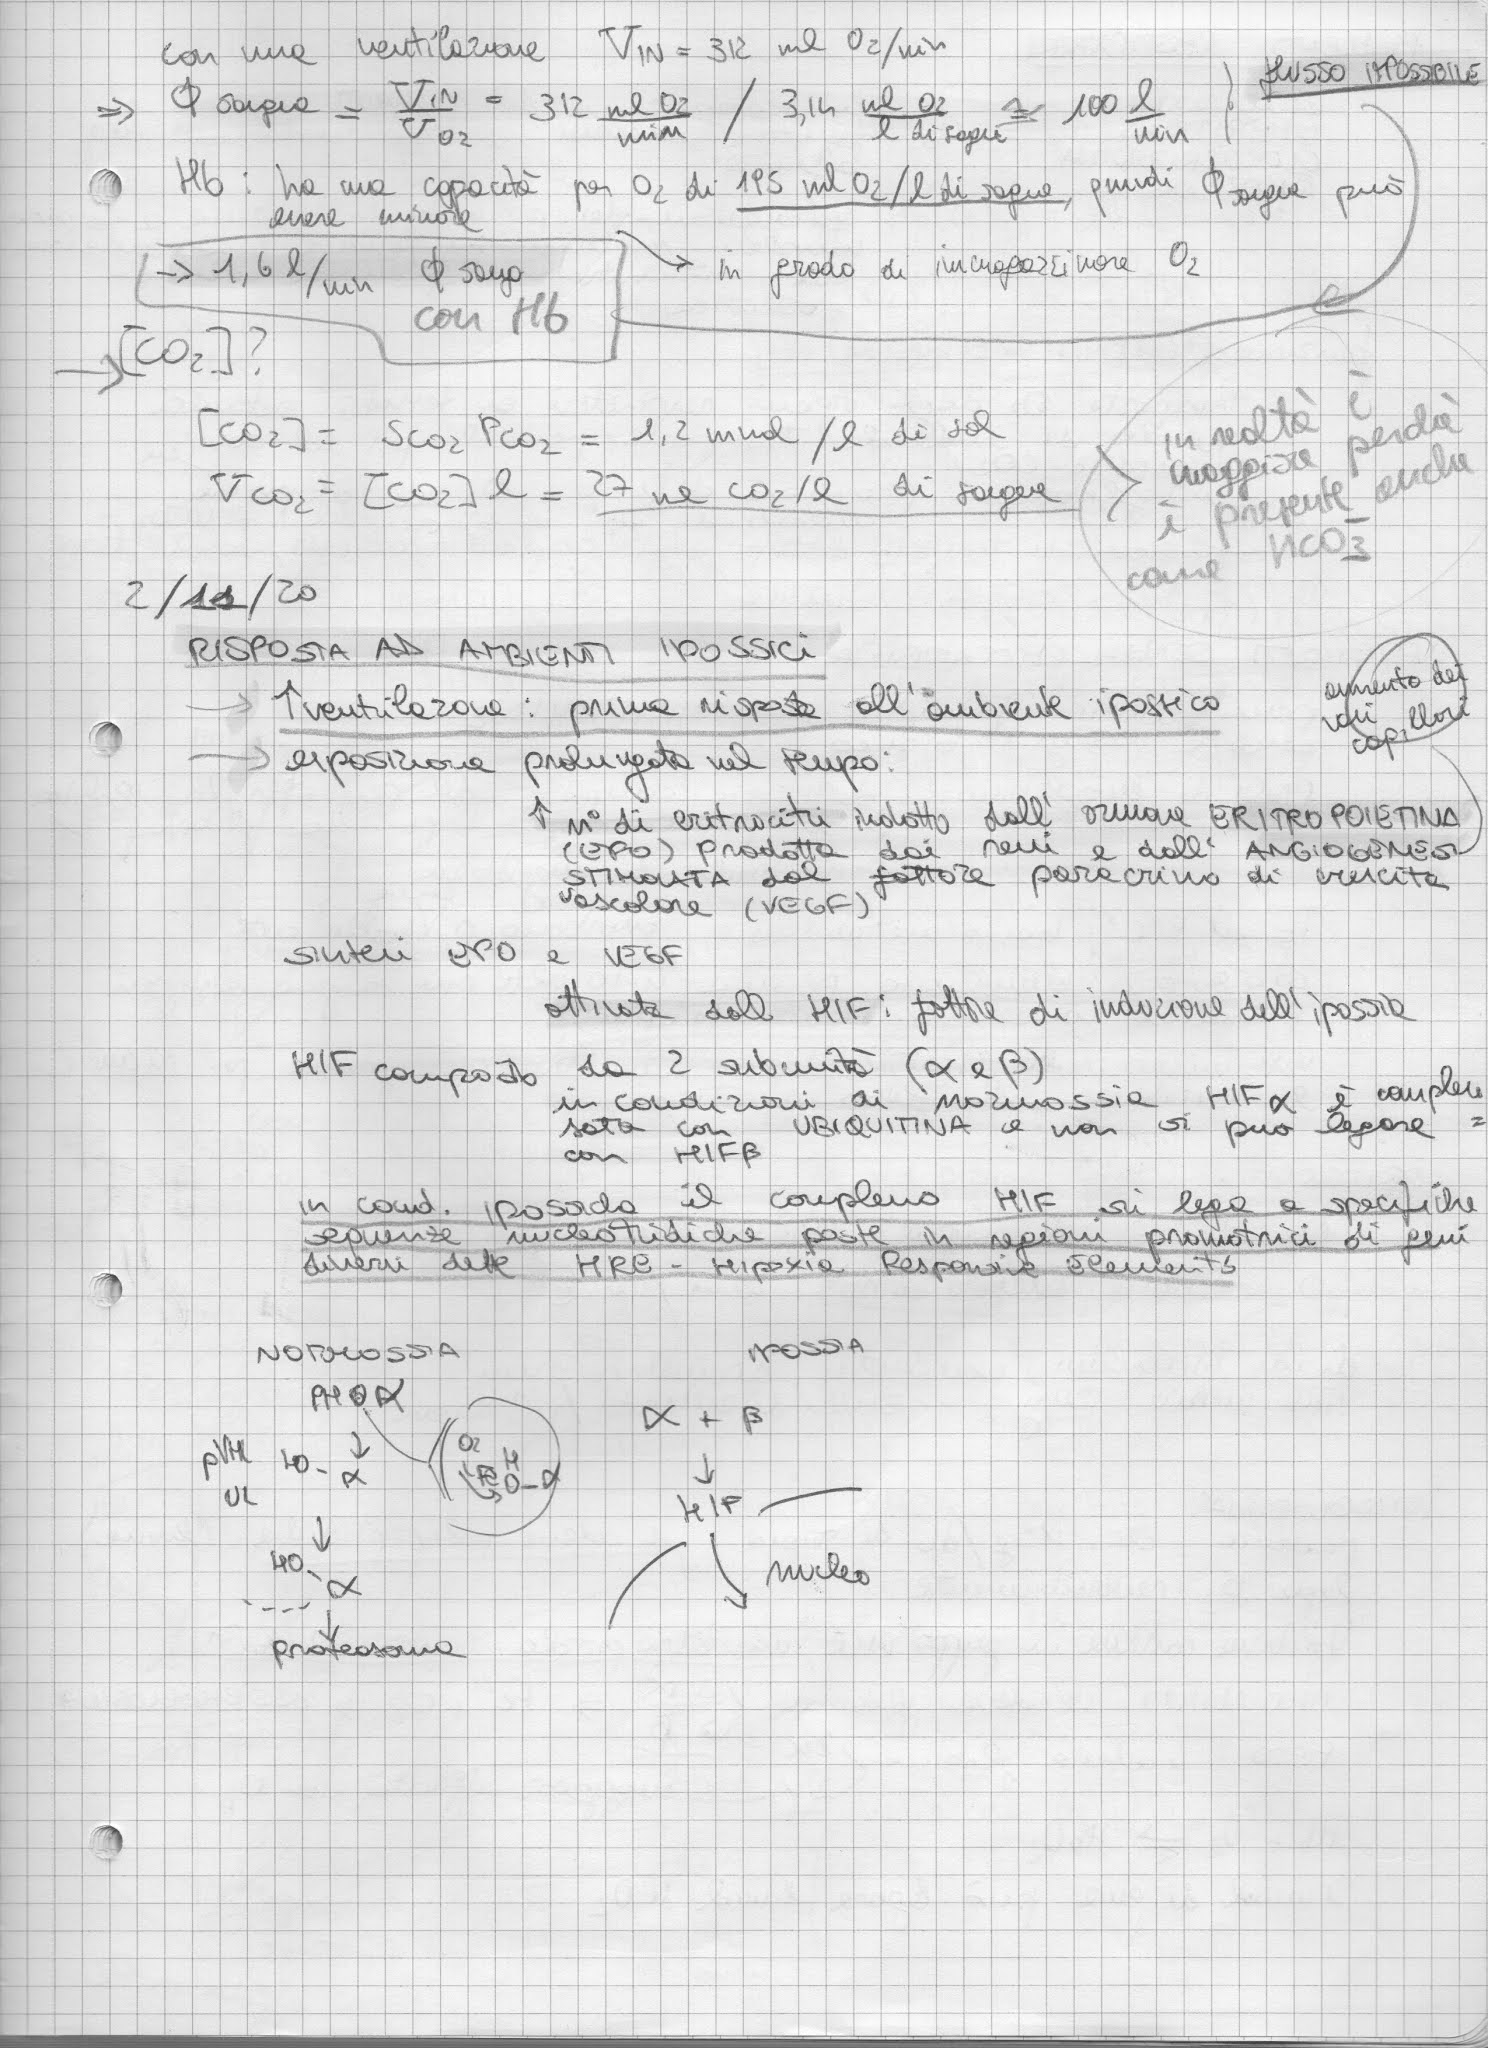 con una ventilazione V_IN = 312 ml O2/min
⇒ Φ sangue = V_IN / V_O2 = 312 ml O2/min / 3,14 ml O2/l di sangue ≅ 100 l/min } FLUSSO IMPOSSIBILE
Hb : ha una capacità per O2 di 195 ml O2/l di sangue, quindi Φ sangue può
essere minore
→ 1,6 l/min Φ sangue
con Hb
→ in grado di immagazzinare O2
→ [CO2]?
[CO2] = S_CO2 P_CO2 = 1,2 mmol /l di sol
V_CO2 = [CO2] l = 27 ml CO2/l di sangue
in realtà è
maggiore perchè
è presente anche
come HCO3-
2/11/20
RISPOSTA AD AMBIENTI IPOSSICI
→ ↑ ventilazione : prima risposta all'ambiente ipossico
→ esposizione prolungata nel tempo:
aumento dei
vasi
capillari
↑ n° di eritrociti indotto dall' ormone ERITROPOIETINA
(EPO) prodotta dai reni e dall' ANGIOGENESI
STIMOLATA dal fattore paracrino di crescita
vascolare (VEGF)
sintesi EPO e VEGF
attivata dall HIF : fattore di induzione dell'ipossia
HIF composto da 2 subunità (α e β)
in condizioni di normossia HIFα è comples
sata con UBIQUITINA e non si può legare =
con HIFβ
in cond. ipossida il complesso HIF si lega a specifiche
sequenze nucleotidiche poste in regioni promotrici di geni
diversi dette HRE - Hipoxia Responsive Elements
NORMOSSIA
PHD α
↓
pVHL HO - α
UL
↓
HO - α
↓
proteosoma
O2
Fe H
O - α
IPOSSIA
α + β
↓
HIF
nucleo